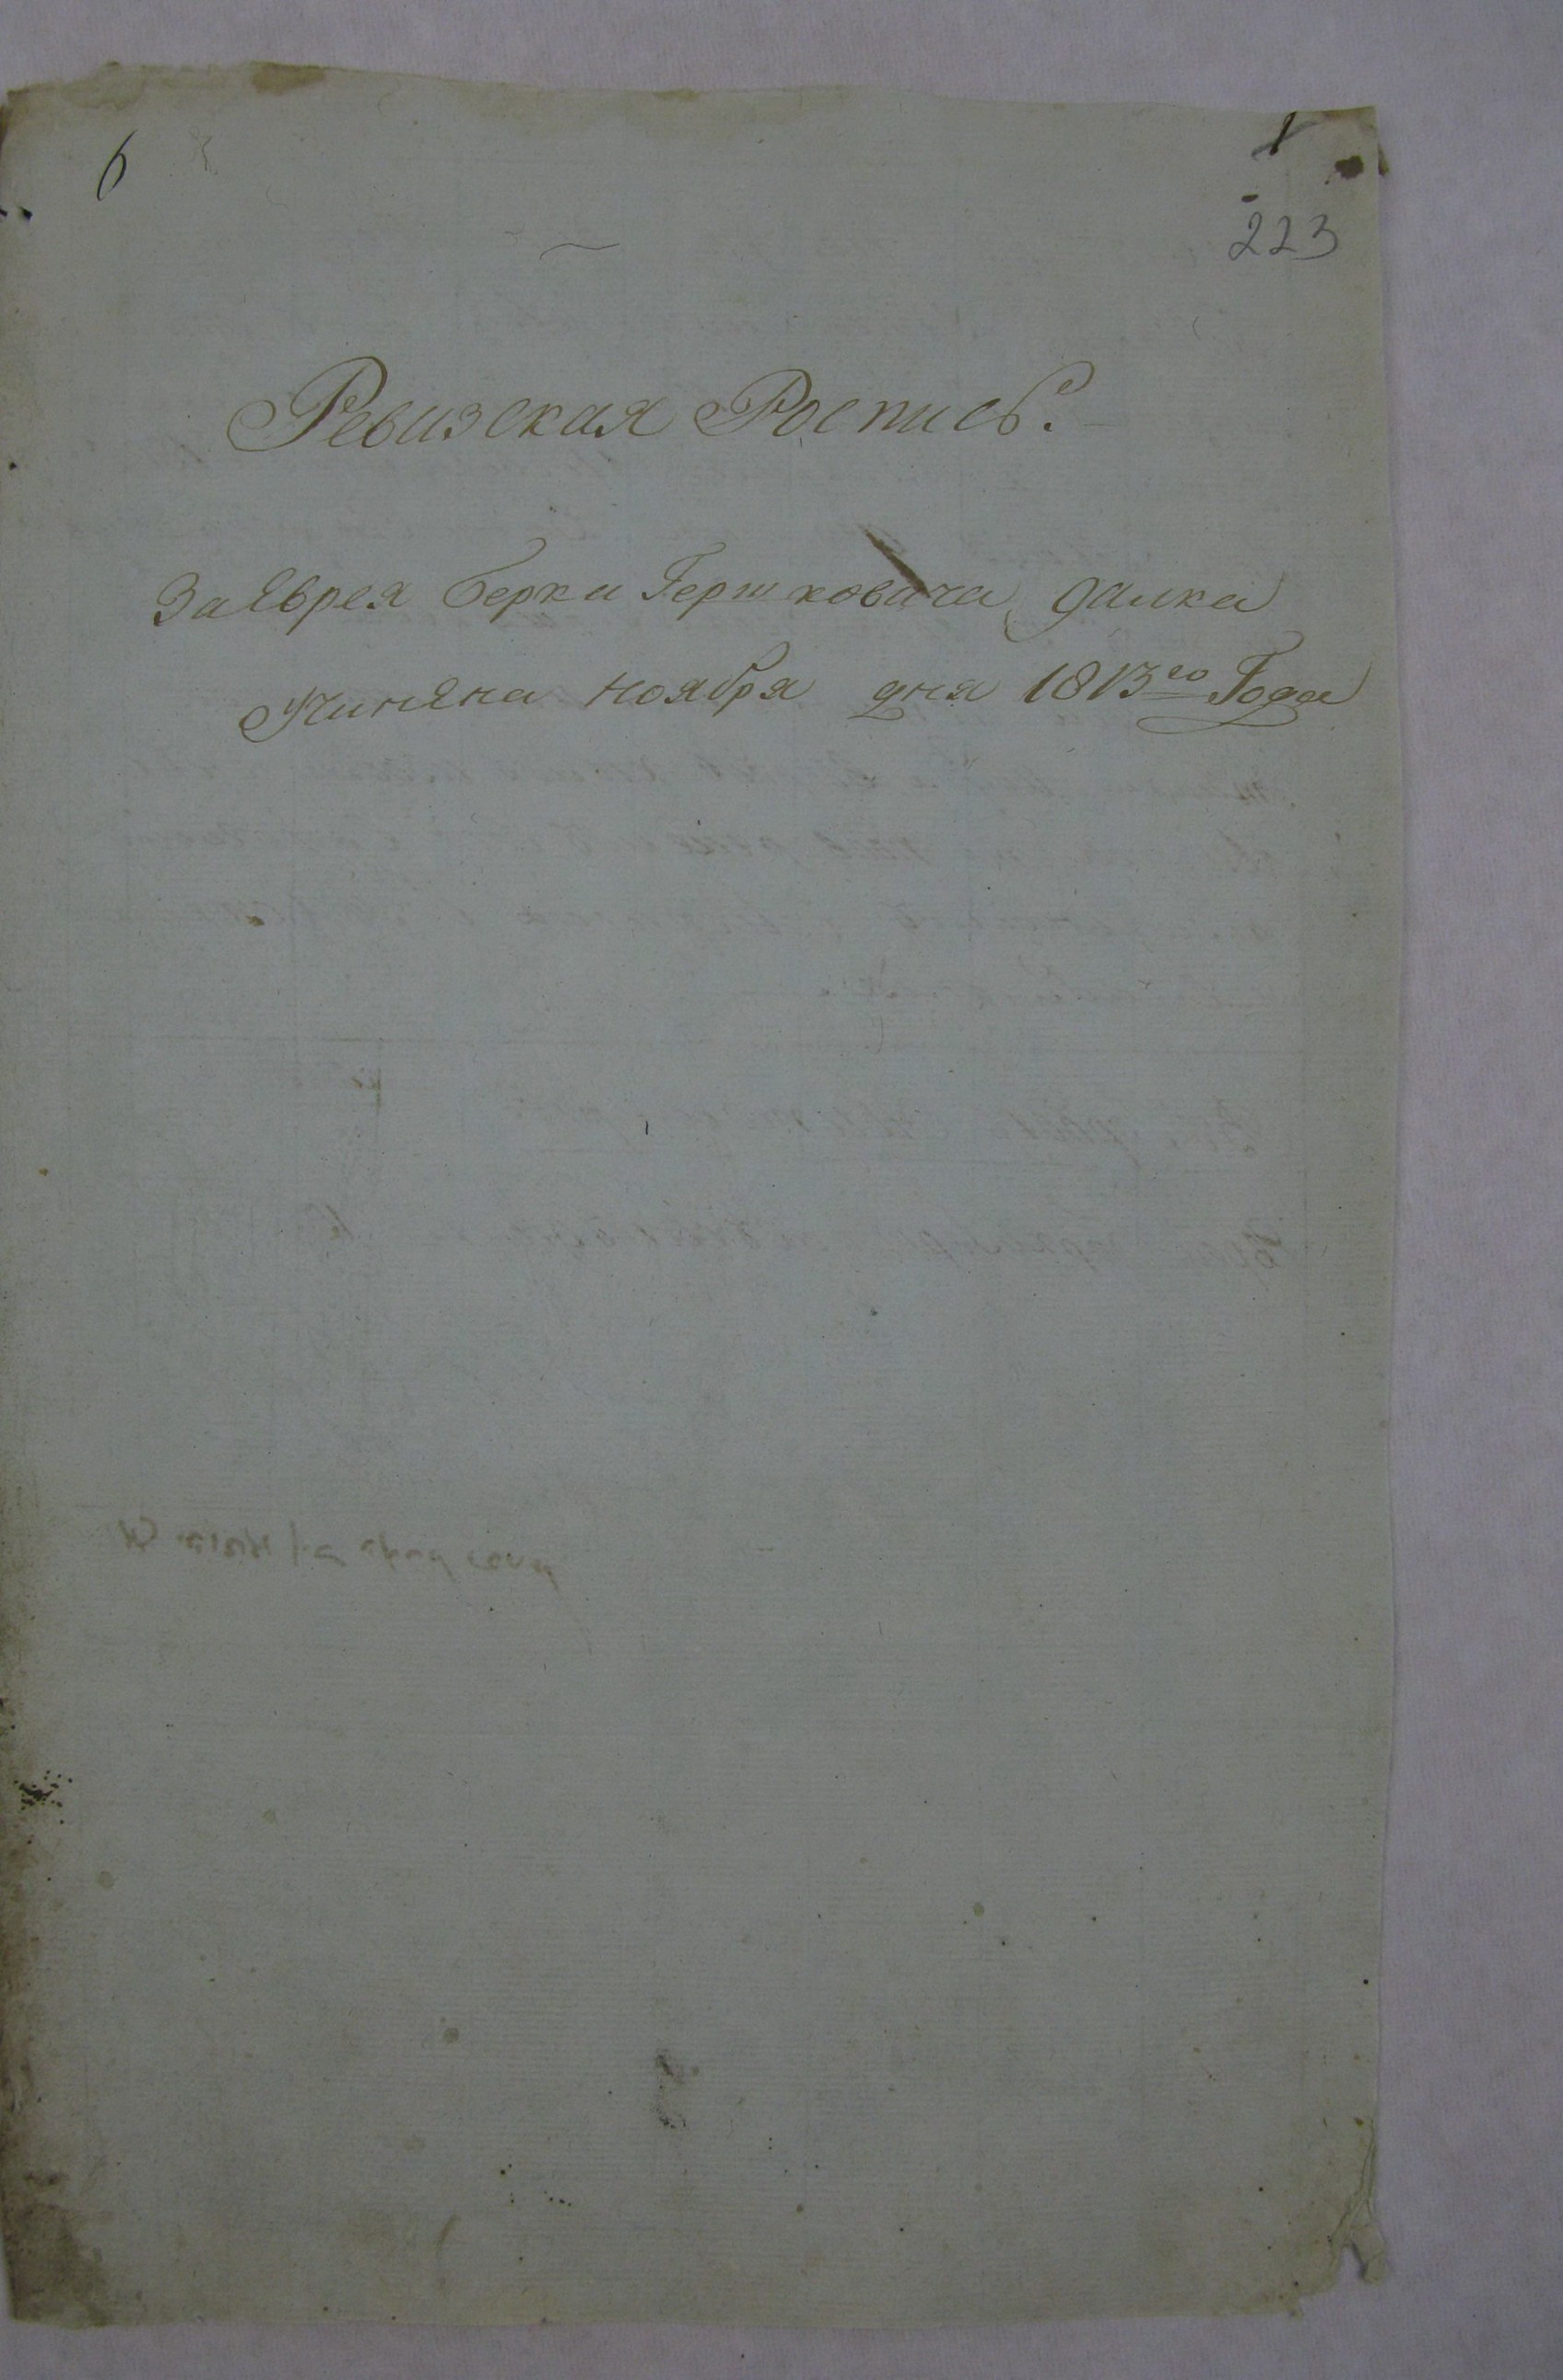 6
1
223
Ревизская Роспись.
За Еврея Берка Гершковича далка
Учинена ноября дня 1813го Года